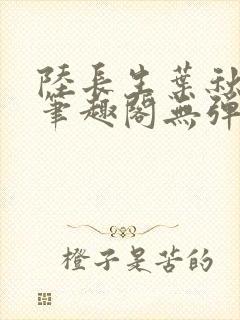 陸長生葉秋
筆趣閣無彈
橙子是苦的